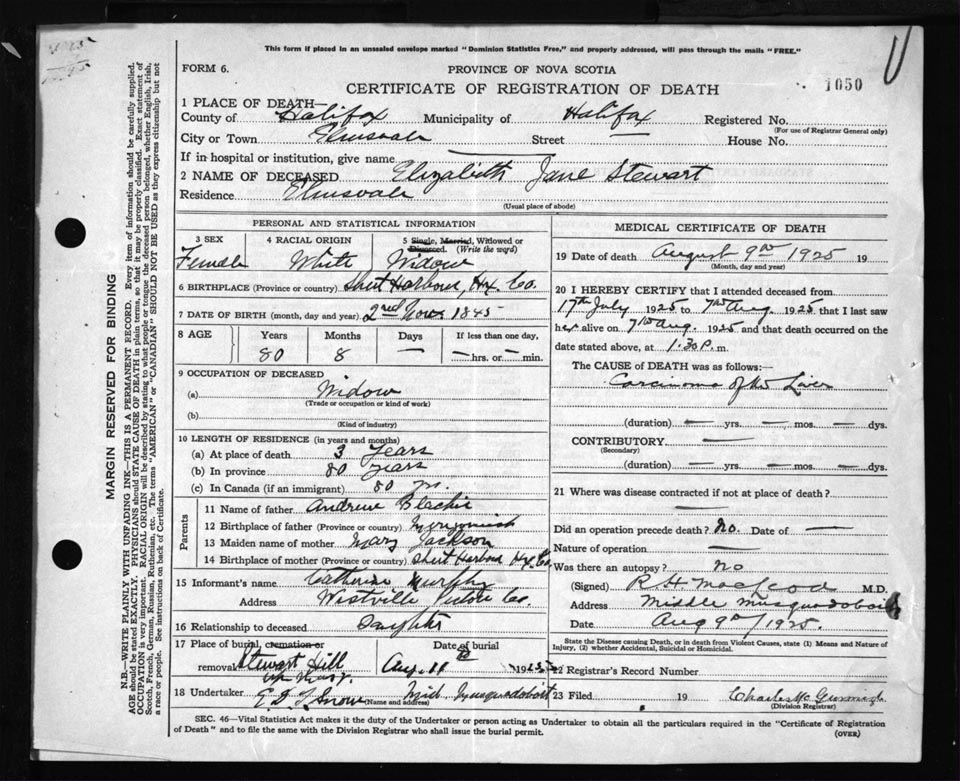 This form if placed in an unsealed envelope marked "Dominion Statistics Free," and properly addressed, will pass through the mails "FREE."
FORM 6.
PROVINCE OF NOVA SCOTIA
CERTIFICATE OF REGISTRATION OF DEATH
1050
1 PLACE OF DEATH—
County of Halifax Municipality of Halifax Registered No.
(For use of Registrar General only)
City or Town Elmsvale Street House No.
If in hospital or institution, give name
2 NAME OF DECEASED Elizabeth Jane Stewart
Residence Elmsvale
(Usual place of abode)
PERSONAL AND STATISTICAL INFORMATION
3 SEX 4 RACIAL ORIGIN 5 Single, Married, Widowed or Divorced. (Write the word)
Female White Widow
6 BIRTHPLACE (Province or country) Sheet Harbour, Hx. Co.
7 DATE OF BIRTH (month, day and year) 2nd Nov 1845
8 AGE Years Months Days If less than one day,
80 8 — — hrs. or — min.
9 OCCUPATION OF DECEASED
(a) Widow
(Trade or occupation or kind of work)
(b)
(Kind of industry)
10 LENGTH OF RESIDENCE (in years and months)
(a) At place of death 3 years
(b) In province 80 years
(c) In Canada (if an immigrant) 80 yr.
Parents
11 Name of father Andrew
12 Birthplace of father (Province or country)
13 Maiden name of mother Mary Jackson
14 Birthplace of mother (Province or country) Sheet Harbour Hx. Co.
15 Informant's name Catherine Murphy
Address Westville Pictou Co.
16 Relationship to deceased Daughter
17 Place of burial, cremation or removal Stewart Hill Date of burial Aug. 11 1925
18 Undertaker Snow Mid Musquodoboit
(Name and address)
MEDICAL CERTIFICATE OF DEATH
19 Date of death August 9th 1925 19
(Month, day and year)
20 I HEREBY CERTIFY that I attended deceased from
17th July 1925 to 7th Aug. 1925 that I last saw
her alive on 7th Aug. 1925 and that death occurred on
date stated above, at 1.30 P. m.
The CAUSE OF DEATH was as follows:
Carcinoma of the Liver
(duration) — yrs. — mos. — dys.
CONTRIBUTORY —
(Secondary)
(duration) — yrs. — mos. — dys.
21 Where was disease contracted if not at place of death? —
Did an operation precede death? No. Date of —
Nature of operation —
Was there an autopsy? No
(Signed) R H MacLeod M.D.
Address Middle Musquodoboit
Date Aug 9th/1925.
State the Disease causing Death, or in death from Violent Causes, state (1) Means and Nature of
Injury, (2) whether Accidental, Suicidal or Homicidal.
22 Registrar's Record Number
23 Filed 19
(Division Registrar)
SEC. 46—Vital Statistics Act makes it the duty of the Undertaker or person acting as Undertaker to obtain all the particulars required in the "Certificate of Registration
of Death" and to file the same with the Division Registrar who shall issue the burial permit.
(OVER)
MARGIN RESERVED FOR BINDING
N.B.—WRITE PLAINLY WITH UNFADING INK—THIS IS A PERMANENT RECORD. Every item of information should be carefully supplied.
AGE should be stated EXACTLY. PHYSICIANS should STATE CAUSE OF DEATH in plain terms, so that it may be properly classified. Exact statement of
OCCUPATION is very important. RACIAL ORIGIN will be described by stating to what people or tongue the deceased person belonged, whether English, Irish,
Scotch, French, German, Russian, Ruthenian, etc. The terms "AMERICAN" or "CANADIAN" SHOULD NOT BE USED as they express citizenship but not
a race or people. See instructions on back of Certificate.